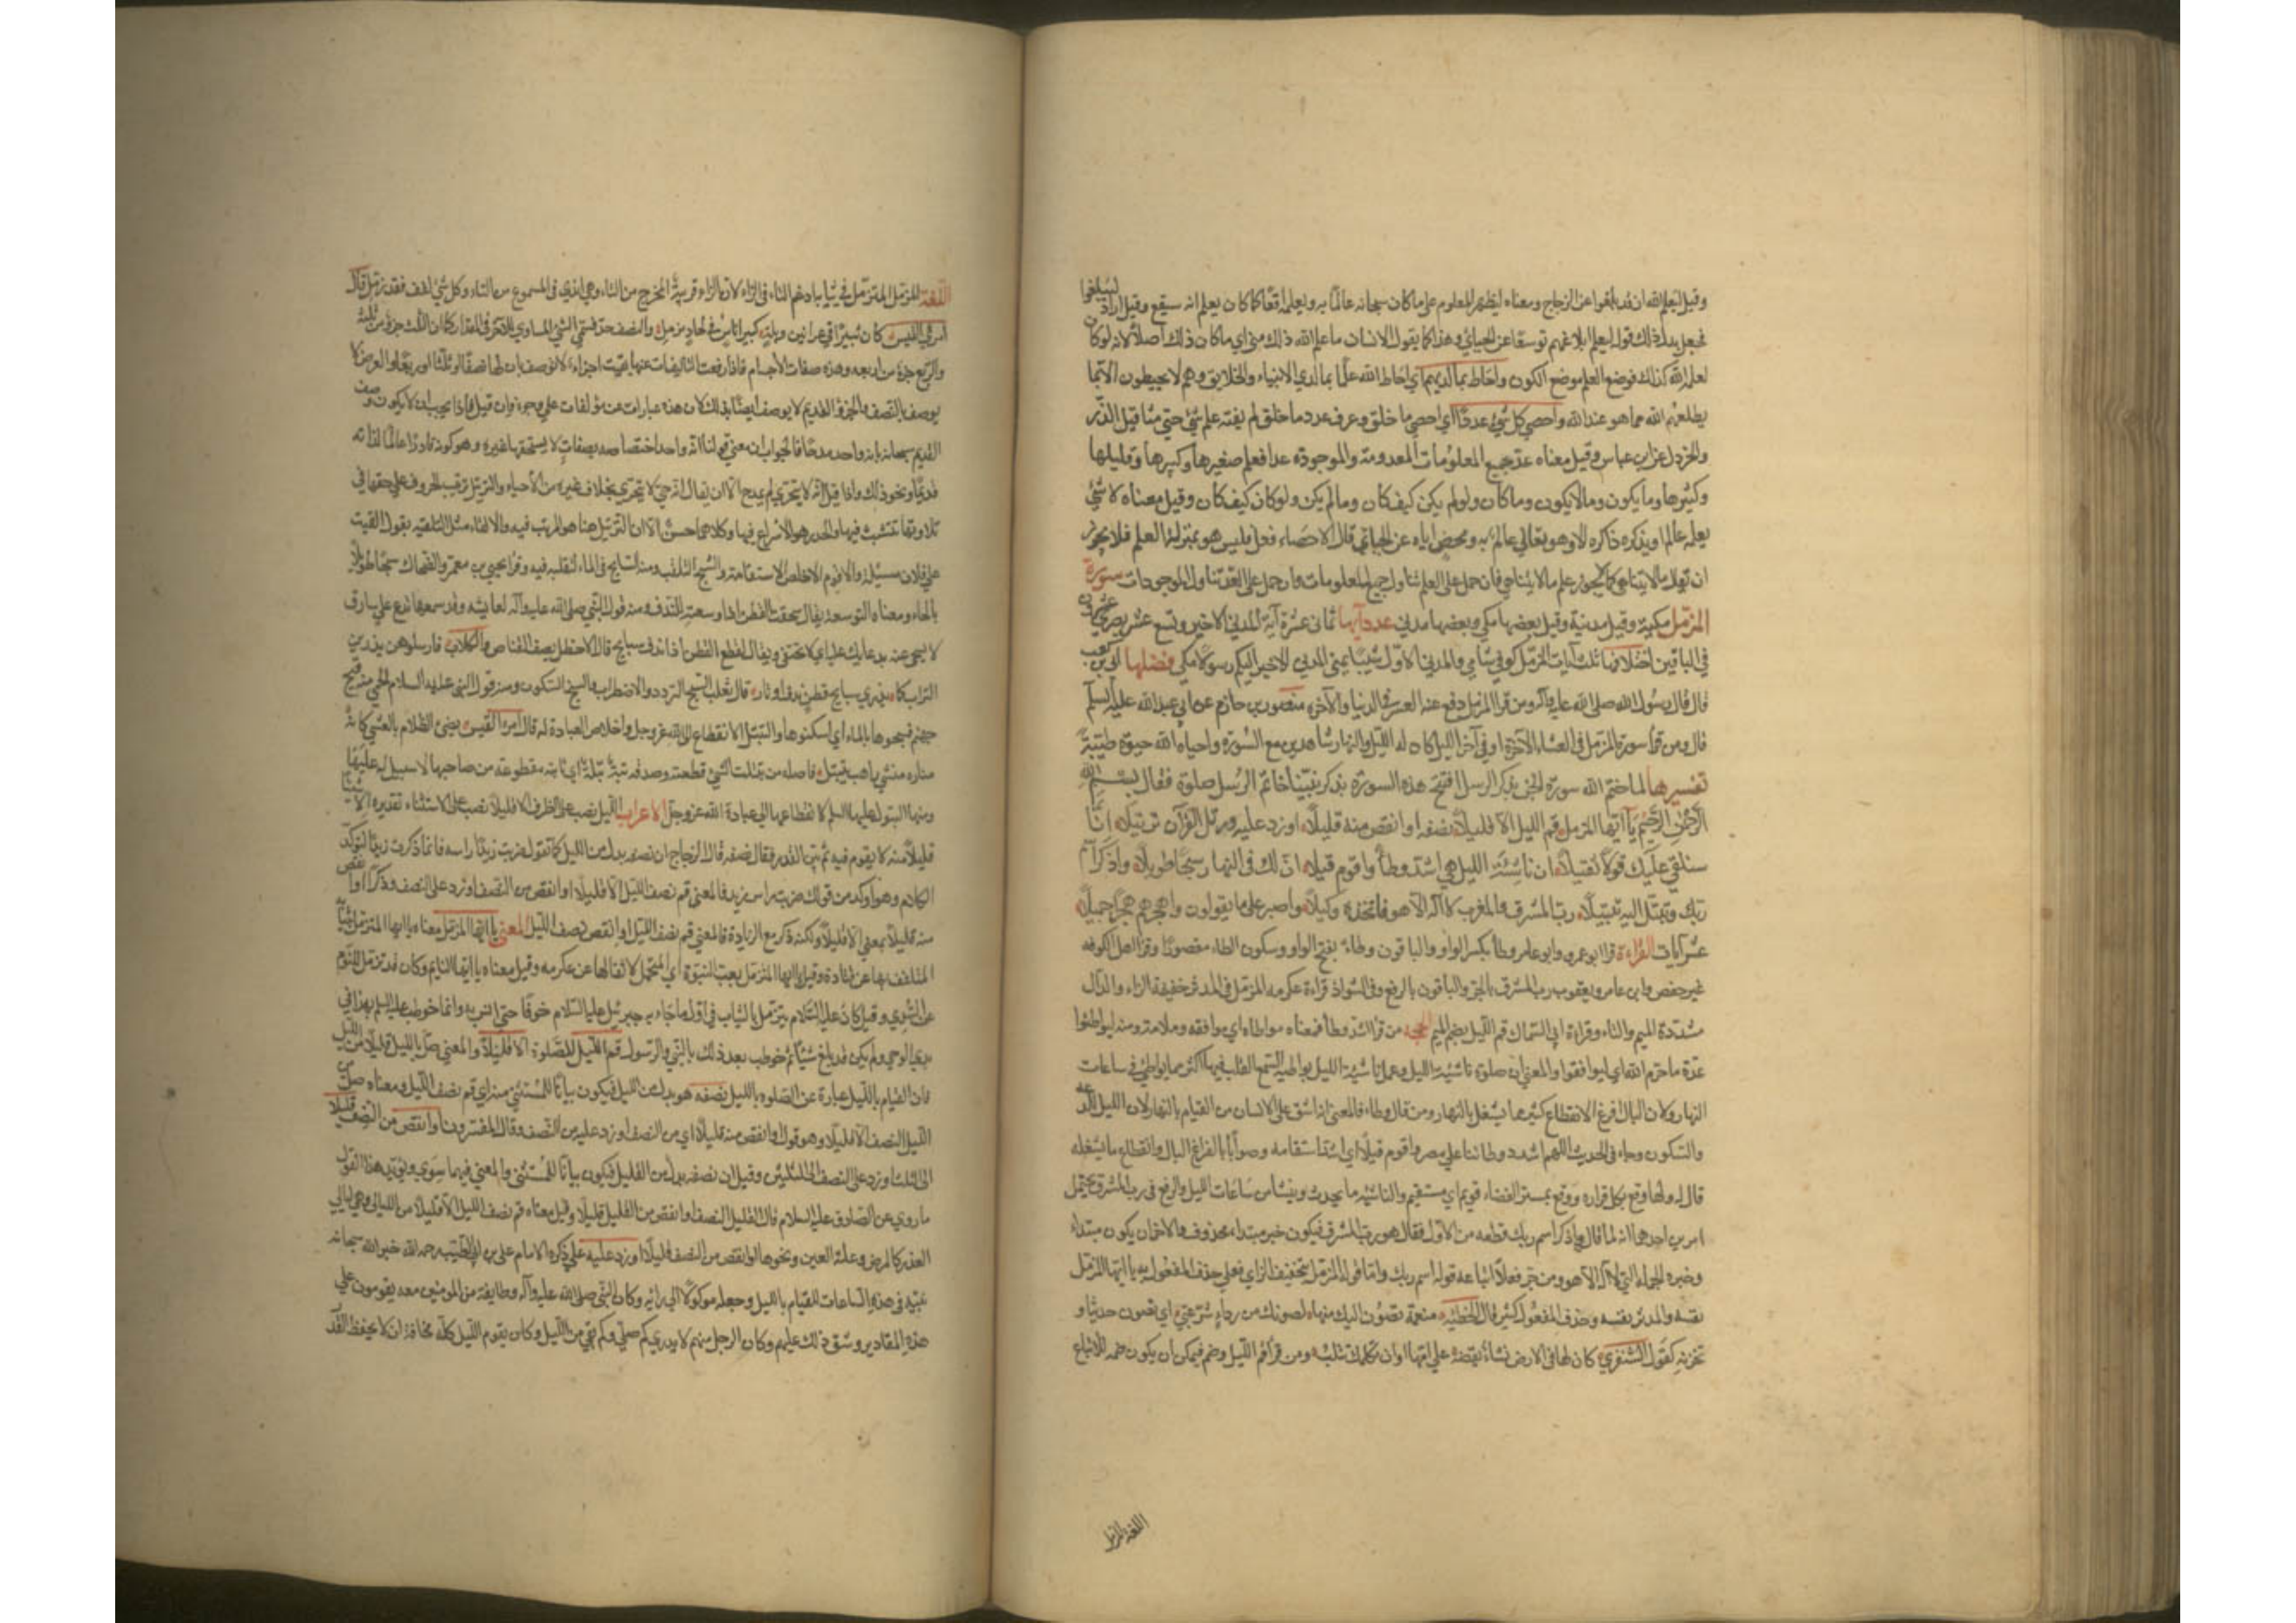 وقيل ليعلم الله ان قد بلغوا عن الزجاج ومعناه ليظهر المعلوم على ما كان سبحانه عالما به ويعلمه واقعا كما كان يعلم انه سيقع وقيل اراد ليبلغوا
فجعل بدل ذلك قوله ليعلم ابلاغهم توسعا عن الجبائي وهذا كما يقول الانسان ما علم الله ذلك مني اي ما كان ذلك اصلا لانه لو كان
لعلم الله كذلك فوضع العلم موضع الكون واحاط بما لديهم اي احاط الله علما بما لدي الانبياء والخلايق وهم لا يحيطون الا بما
يطلعهم الله مما هو عند الله واحصي كل شئ عددا اي احصي ما خلق وعرف عدد ما خلق لم يفته علم شئ حتي مثاقيل الذر
والخردل عن ابن عباس وقيل معناه عد جميع المعلومات المعدومة والموجودة عدا فعلم صغيرها وكبيرها وقليلها
وكثيرها وما يكون وما لا يكون وما كان ولو لم يكن كيف كان وما لم يكن ولو كان كيف كان وقيل معناه لا شئ
يعلمه عالم او يذكره ذاكر الا وهو تعالي عالم به ومحص اياه عن الجبائي قال الاحصاء فعل فليس هو بمنزلة العلم فلا يجوز
ان يقال ما لا يتناهي كما يجوز علم ما لا يتناهي فان حمل على العلم تناول جميع المعلومات وان حمل على العد تناول الموجودات سورة
المزمل مكية وقيل مدنية وقيل بعضها مكي وبعضها مدني عدد آيها ثماني عشرة آية المدني الاخير وتسع عشر بصري عشرون
في الباقين اختلافها ثلث آيات المزمل كوفي شامي والمدني الاول شيبا يمني المدني الاخير اليكم رسولا مكي فضلها ابي بن كعب
قال قال رسول الله صلى الله عليه وآله ومن قرا المزمل دفع عنه العسر في الدنيا والآخرة منصور بن حازم عن ابي عبد الله عليه السلم
قال ومن قرأ سورة المزمل في العشاء الآخرة او في آخر الليل كان له الليل والنهار شاهدين مع السورة واحياه الله حيوة طيبة
تفسيرها لما ختم الله سورة الجن بذكر الرسل افتتح هذه السورة بذكر نبينا خاتم الرسل صلوة فقال بسم الله
الرحمن الرحيم يآ ايها المزمل قم الليل الا قليلا نصفه او انقص منه قليلا او زد عليه ورتل القرآن ترتيلا انا
سنلقي عليك قولا ثقيلا ان ناشئة الليل هي اشد وطأ واقوم قيلا ان لك في النهار سبحا طويلا واذكر اسم
ربك وتبتل اليه تبتيلا رب المشرق والمغرب لا اله الا هو فاتخذه وكيلا واصبر على ما يقولون واهجرهم هجرا جميلا
عشر آيات القراءة قرا ابو عمرو وابو عامر وطأ بكسر الواو والباقون وطاء بفتح الواو وسكون الطاء مقصورا وقرا اهل الكوفه
غير حفص وابن عامر ويعقوب رب المشرق بالجر والباقون بالرفع وفي الشواذ قراءة عكرمه المزمل في المدثر خفيفة الزاء والدال
مشددة الميم والثاء وقراءة ابي السماك قم الليل بضم الميم الحجة من قرا اشد وطأ فمعناه مواطاه اي موافقه وملامة ومنه ليواطئوا
عدة ما حرم الله اي ليوافقوا والمعني ان صلوة ناشئة الليل وعمل ناشئة الليل يواطي السمع القلب فيها اكثر مما يواطئ في ساعات
النهار ولان البال افرغ لانقطاع كثير مما يشغل بالنهار ومن قال وطاء فالمعني انه اشق على الانسان من القيام بالنهار لان الليل للدعه
والسكون وجاء في الحديث اللهم اشدد وطاتك على مضر واقوم قيلا اي اشد استقامه وصوابا لفراغ البال وانقطاع ما يشغله
قال له ولها وقع بكل قراره ووقع بمستن الفضاء قويم اي مستقيم والناشئة ما يحدث وينشأ من ساعات الليل والرفع في رب المشرق يحتمل
امرين احدهما انه لما قال واذكر اسم ربك قطعه من الاول فقال هو رب المشرق فيكون خبر مبتداء محذوف والاخر ان يكون مبتداء
وخبره الجملة التي لا اله الا هو ومن جر فعلي اتباعه قوله اسم ربك واما قوله المزمل بتخفيف الزاي فعلي حذف المفعول به يا ايها المزمل
نفسه والمدثر نفسه وحذف المفعول كثير قال الحطيئة منعمة تصون اليك منها كصونك من رداء شرعبي اي تصون حديثا و
تخزنه كقول الشنفري كان لها في الارض نسيا تقصه علي امها وان تكلمك تبلت ومن قرأ قم الليل وضم فيمكن ان يكون ضمه للاتباع
اللغة المزمل
اللغة المزمل المتزمل في ثيابه ادغم التاء في الزاء لان الزاء قريبة المخرج من التاء وهي اندي في المسموع من التاء وكل شئ لفف فقد زمل قال
امرئ القيس كان ثبيرا في عرانين وبله كبير اناس في بجاد مزمل والنصف احد قسمي الشئ المساوي للآخر في المقدار كما ان الثلث جزؤ من ثلثة
والربع جزء من اربعه وهذه صفات الاجسام فاذا رفعت التاليفات عنها بقيت اجزاء لا توصف بان لها نصفا او ثلثا او ربعا والعرض لا
يوصف بالنصف والجزؤ والقديم لا يوصف ايضا بذلك لان هذه عبارات عن مؤلفات علي وجوه وان قيل فاذا يجب ان لا يكون وصف
القديم سبحانه بانه واحد مدحا فالجواب ان معني قولنا انه واحد اختصاصه بصفات لا يستحقها غيره وهو كونه قادرا عالما لذاته
قديما ونحو ذلك واذا قيل انه لا يتجزي لم يمدح الا ان يقال انه حي لا يتجزي بخلاف غيره من الأحياء والترتيل ترتيب الحروف علي حقها في
تلاوتها بتثبت فيها والحدر هو الاسراع فيها وكلاهما حسن الا ان الترتيل هنا هو المرغب فيه والالقاء مثل التلقيه بقول القيت
علي فلان مسئلة والاقوم الاخلص الاستقامة والسبح التقلب ومنه السابح في الماء لتقلبه فيه وقرأ يحيي بن معمر والضحاك سبخا طويلا
بالخاء ومعناه التوسعة يقال سبخت القطن اذا وسعته للندف ومنه قول النبي صلى الله عليه وآله لعايشه وقد سمعها تدعو علي سارق
لا تسبخي عنه بدعائك عليه اي لا تخففي ويقال لقطع القطن اذا ندف سبايخ قال الاخطل يصف القناص والكلاب فارسلوهن يذرين
التراب كما يذري سبايخ قطن ندف اوتار قال ثعلب السبح التردد والاضطراب والسبخ السكون ومنه قول النبي عليه السلام الحمي من فيح
جهنم فسبخوها بالماء اي اسكنوها والتبتل الانقطاع الى الله عز وجل واخلاص العبادة له قال امرأ القيس يضئ الظلام بالعشي كانها
مناره ممسي راهب يتبتل فاصله من بتلت الشئ قطعته وصدقه بتة بتلة اي بائنه مقطوعه من صاحبها لا سبيل له عليها
ومنها البتول عليها السلم لانقطاعها الي عبادة الله عز وجل الاعراب الليل نصب على الظرف الا قليلا نصب على الاستثناء تقديره الا شيئا
قليلا منه لا يقوم فيه ثم بين القدر فقال نصفه قال الزجاج ان نصفه بدل من الليل كما تقول ضربت زيدا راسه فانما ذكرت زيدا لتوكد
الكلام وهو اوكد من قولك ضربت راس زيد فالمعني قم نصف الليل الا قليلا او انقص من النصف او زد على النصف وذكر او انقص
منه قليلا بمعني الا قليلا ولكنه ذكر مع الزيادة فالمعني قم نصف الليل او انقص نصف الليل المعني يا ايها المزمل معناه يا ايها المتزمل بثيابه
المتلفف بها عن قتادة وقيل يا ايها المزمل بعباء النبوة اي المتحمل لاثقالها عن عكرمه وقيل معناه يا ايها النايم وكان قد تزمل للنوم
عن السدي وقيل كان عليه السلام يتزمل بالثياب في اول ما جاء به جبرئيل عليه السلام خوفا حتى انس به وانما خوطب عليه السلم بهذا في
بدئ الوحي ولم يكن قد بلغ شيئا ثم خوطب بعد ذلك بالنبي والرسول قم الليل للصلوة الا قليلا والمعني صل بالليل قليلا من الليل
فان القيام بالليل عبارة عن الصلوة بالليل نصفه هو بدل من الليل فيكون بيانا للمستثني منه اي قم نصف الليل ومعناه صل من
الليل النصف الا قليلا وهو قوله او انقص منه قليلا اي من النصف او زد عليه من النصف وقال المفسرون او انقص من النصف قليلا
الى الثلث او زد على النصف الي الثلثين وقيل ان نصفه بدل من القليل فيكون بيانا للمستثني والمعني فيهما سوي ويؤيد هذا القول
ما روي عن الصادق عليه السلام قال القليل النصف او انقص من القليل قليلا وقيل معناه قم نصف الليل الا قليلا من الليالي وهي ليالي
العذر كالمرض وغلبة العين ونحوها او انقص من النصف قليلا او زد عليه علي ذكره الامام علي بن ابي الطيب رحمه الله خير الله سبحانه
نبيه في هذه الساعات للقيام بالليل وجعله موكولا الي رائه وكان النبي صلى الله عليه وآله وطايفة من المؤمنين معه يقومون علي
هذه المقادير وشق ذلك عليهم وكان الرجل منهم لا يدري كم صلي وكم بقي من الليل وكان يقوم الليل كله مخافة ان لا يحفظ القدر